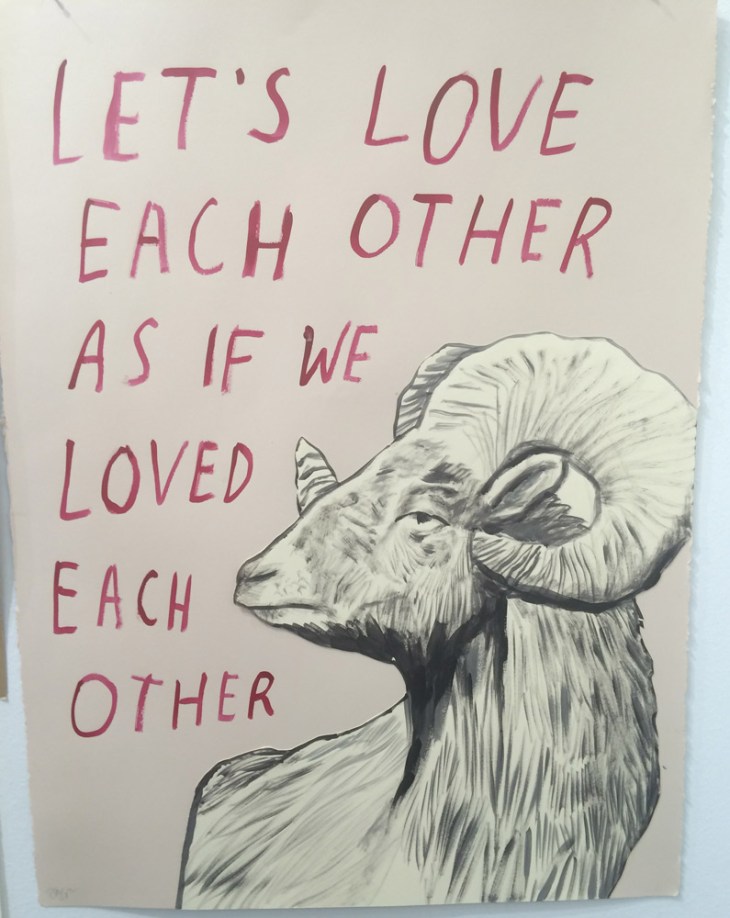 LET'S LOVE
EACH OTHER
AS IF WE
LOVED
EACH
OTHER